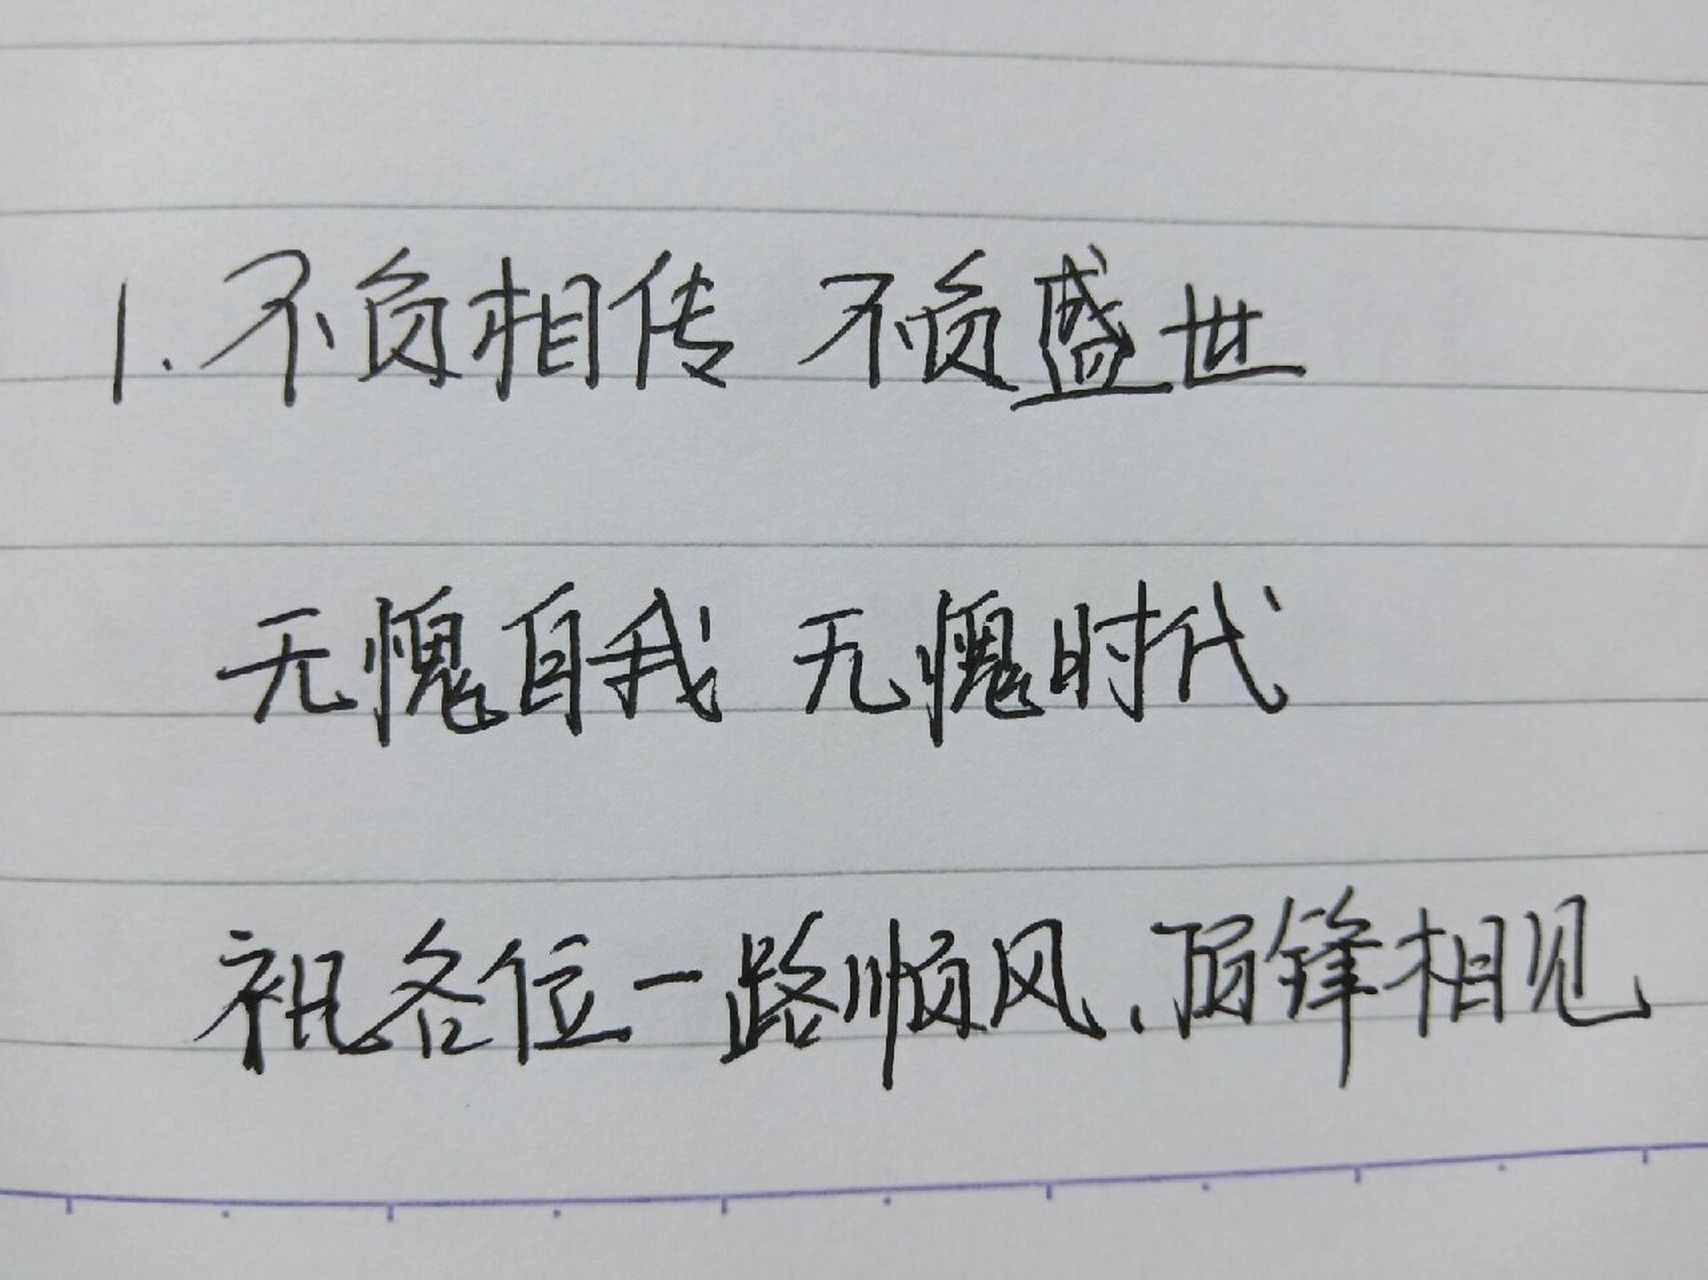 1. 不负相传 不负盛世
无愧自我 无愧时代
祝各位一路顺风、顶锋相见